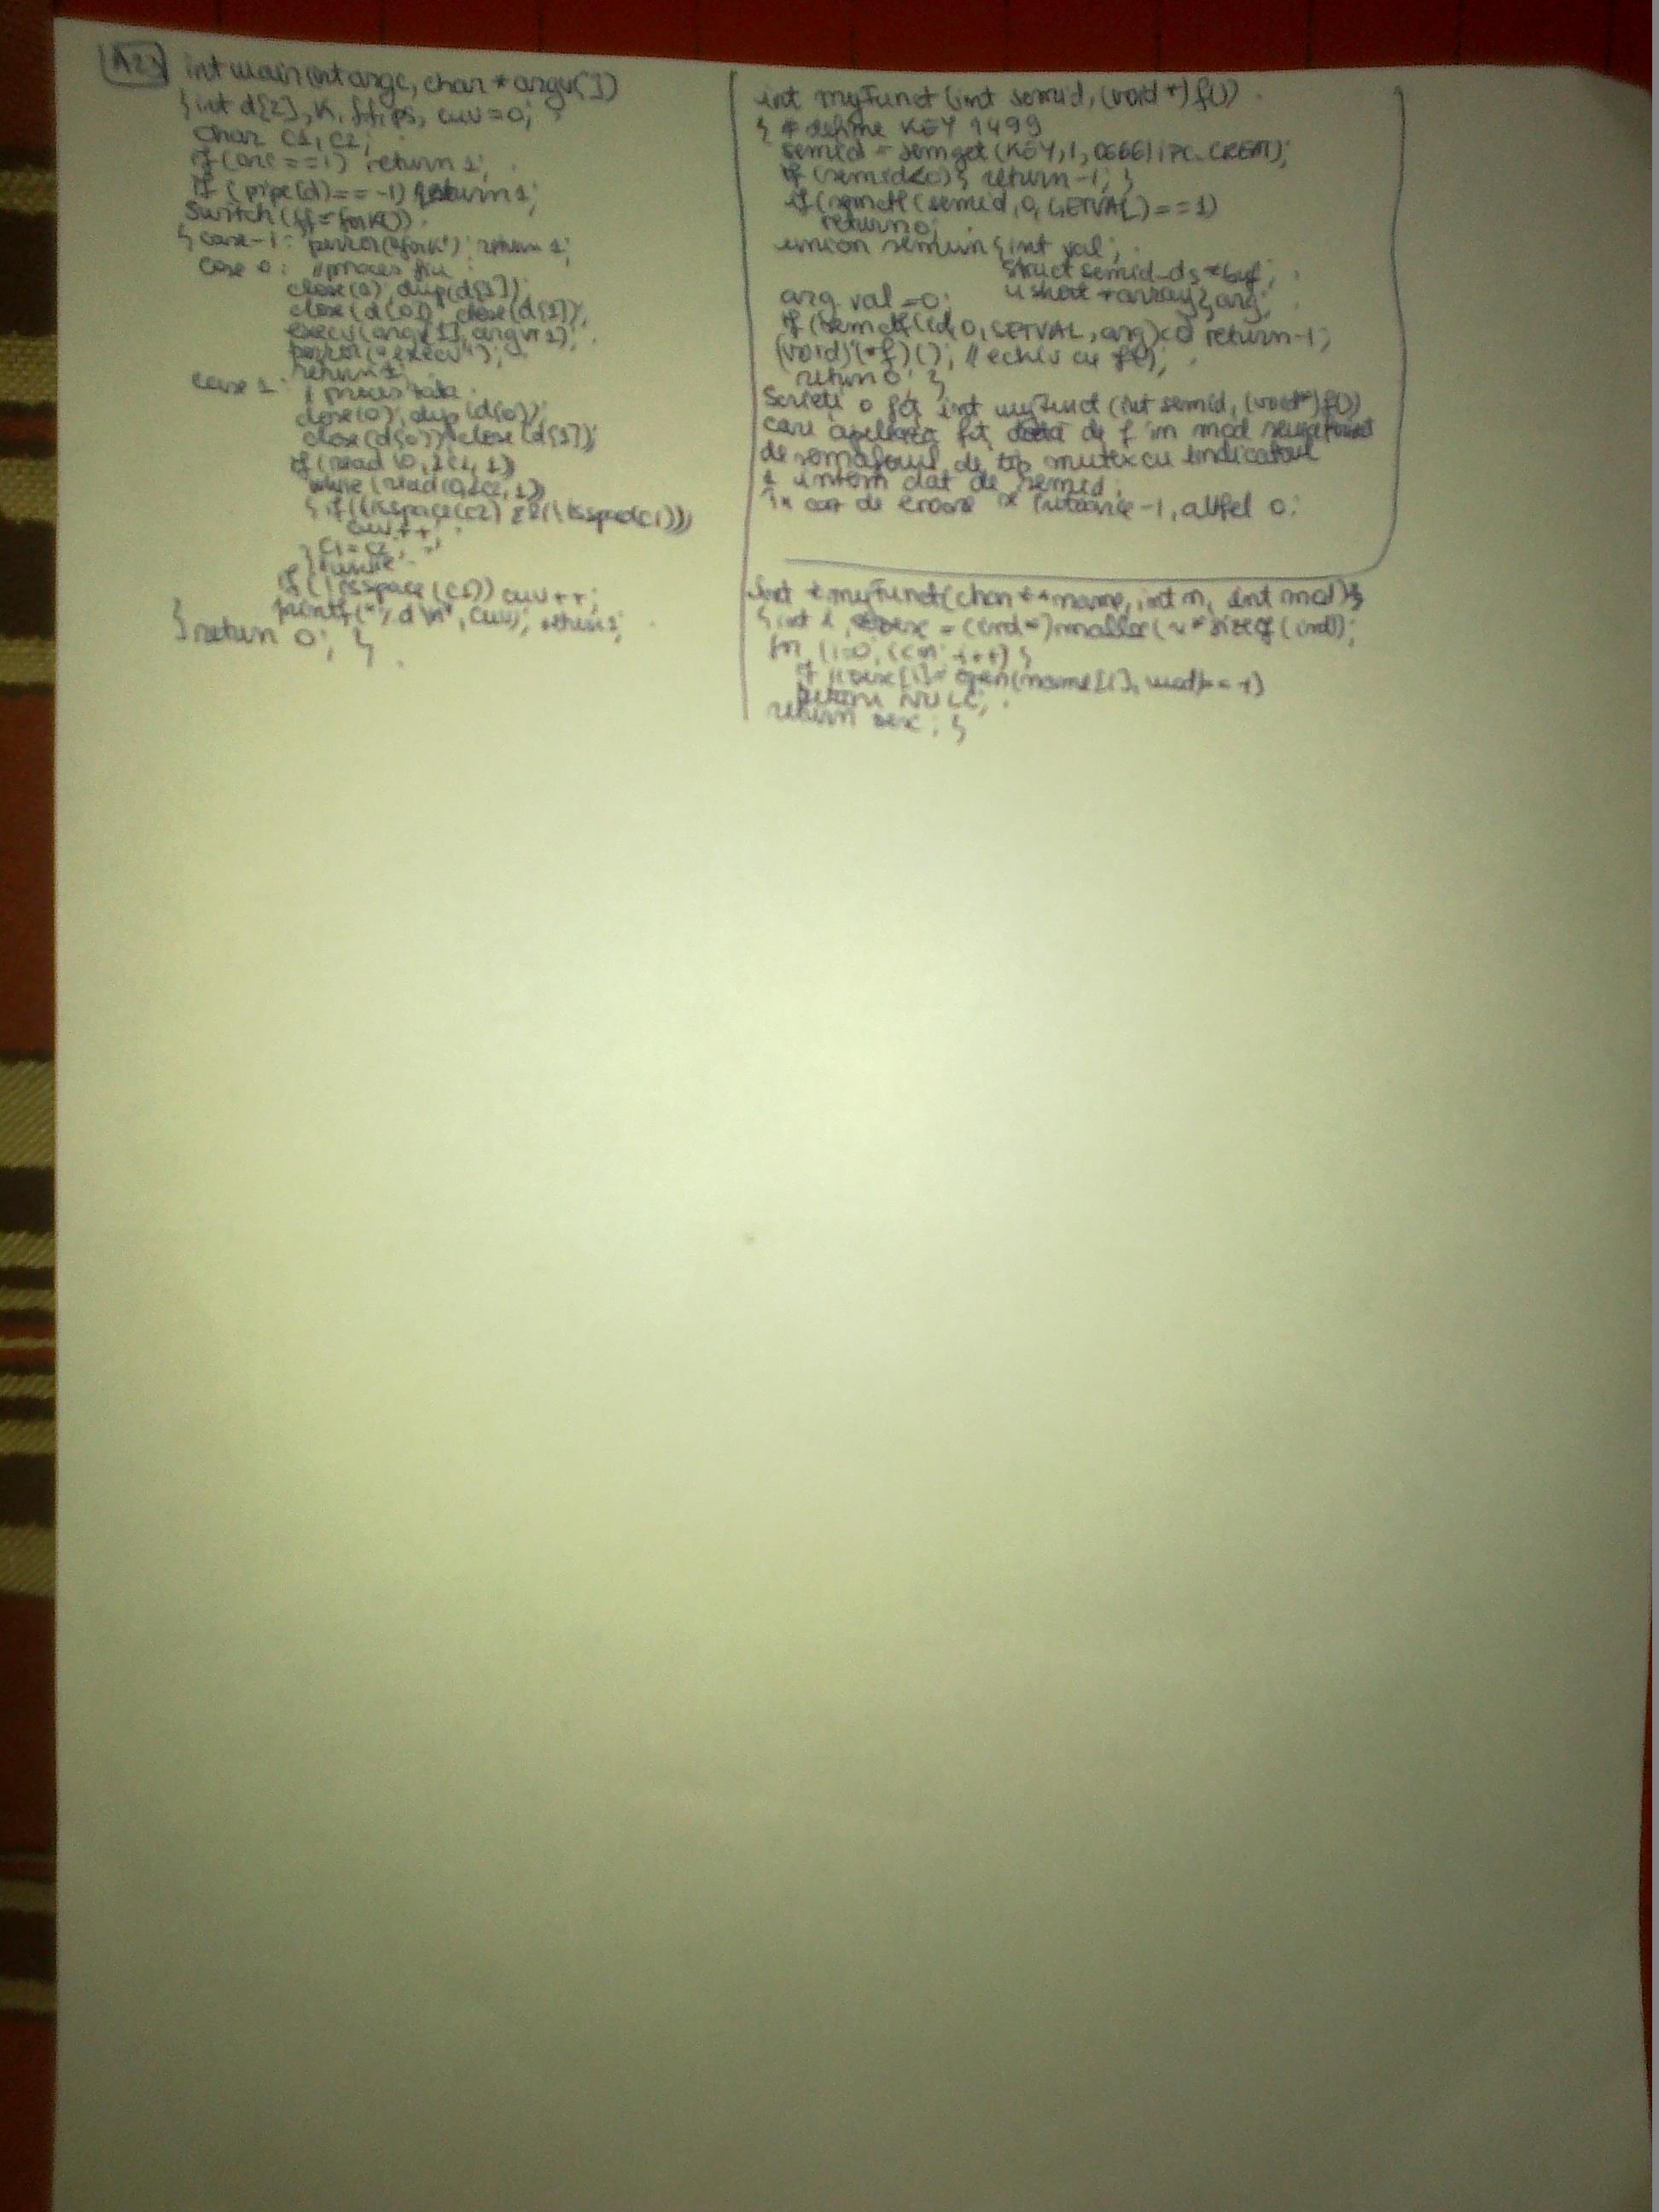 A23 int main(int argc, char *argv[])
{ int d[2], K, ff, ps, cuv=0;
char c1, c2;
if (arc==1) return 1;
if (pipe(d)== -1) return 1;
Switch (ff=fork())
{ case -1: perror("fork"); return 1;
case 0: //proces fiu
close(0); dup(d[1]);
close(d[0]) close(d[1]);
execv(argv[1], argv+1);
perror("execv");
return 1;
case 1: proces tata
close(0); dup(d[0]);
close(d[0]) close(d[1]);
if (read(0, &c1, 1))
while (read(0, &c2, 1))
{ if ((isspace(c2) && (!isspace(c1)))
cuv++;
c1=c2;
} //while
if (!isspace(c1)) cuv++;
printf("%d\n", cuv); return 1;
} return 0; }
int myFunct (int semid, (void*) f())
{ # define KEY 1499
semid = semget (KEY, 1, 0666|IPC_CREAT);
if (semid<0) { return -1; }
if (semctl (semid, 0, GETVAL) ==1)
return 0;
union semun { int val;
struct semid_ds *buf;
ushort *array} arg;
arg.val=0;
if (semctl(id, 0, SETVAL, arg)<0 return -1;
(void) (*f) (); // echiv cu f();
return 0; }
Scrieti o fct int myFunct (int semid, (void*) f())
care apeleaza fct data de f in mod
de semaforul de tip mutex cu indicatorul
intern dat de semid.
In caz de eroare intoarce -1, altfel 0.
int *myFunct(char **name, int n, int mod) {
{ int i, = (int*) malloc(n * sizeof (int));
for (i=0; i<n; i++) {
if = open(name[i], mod)== -1)
return NULL;
return ; }